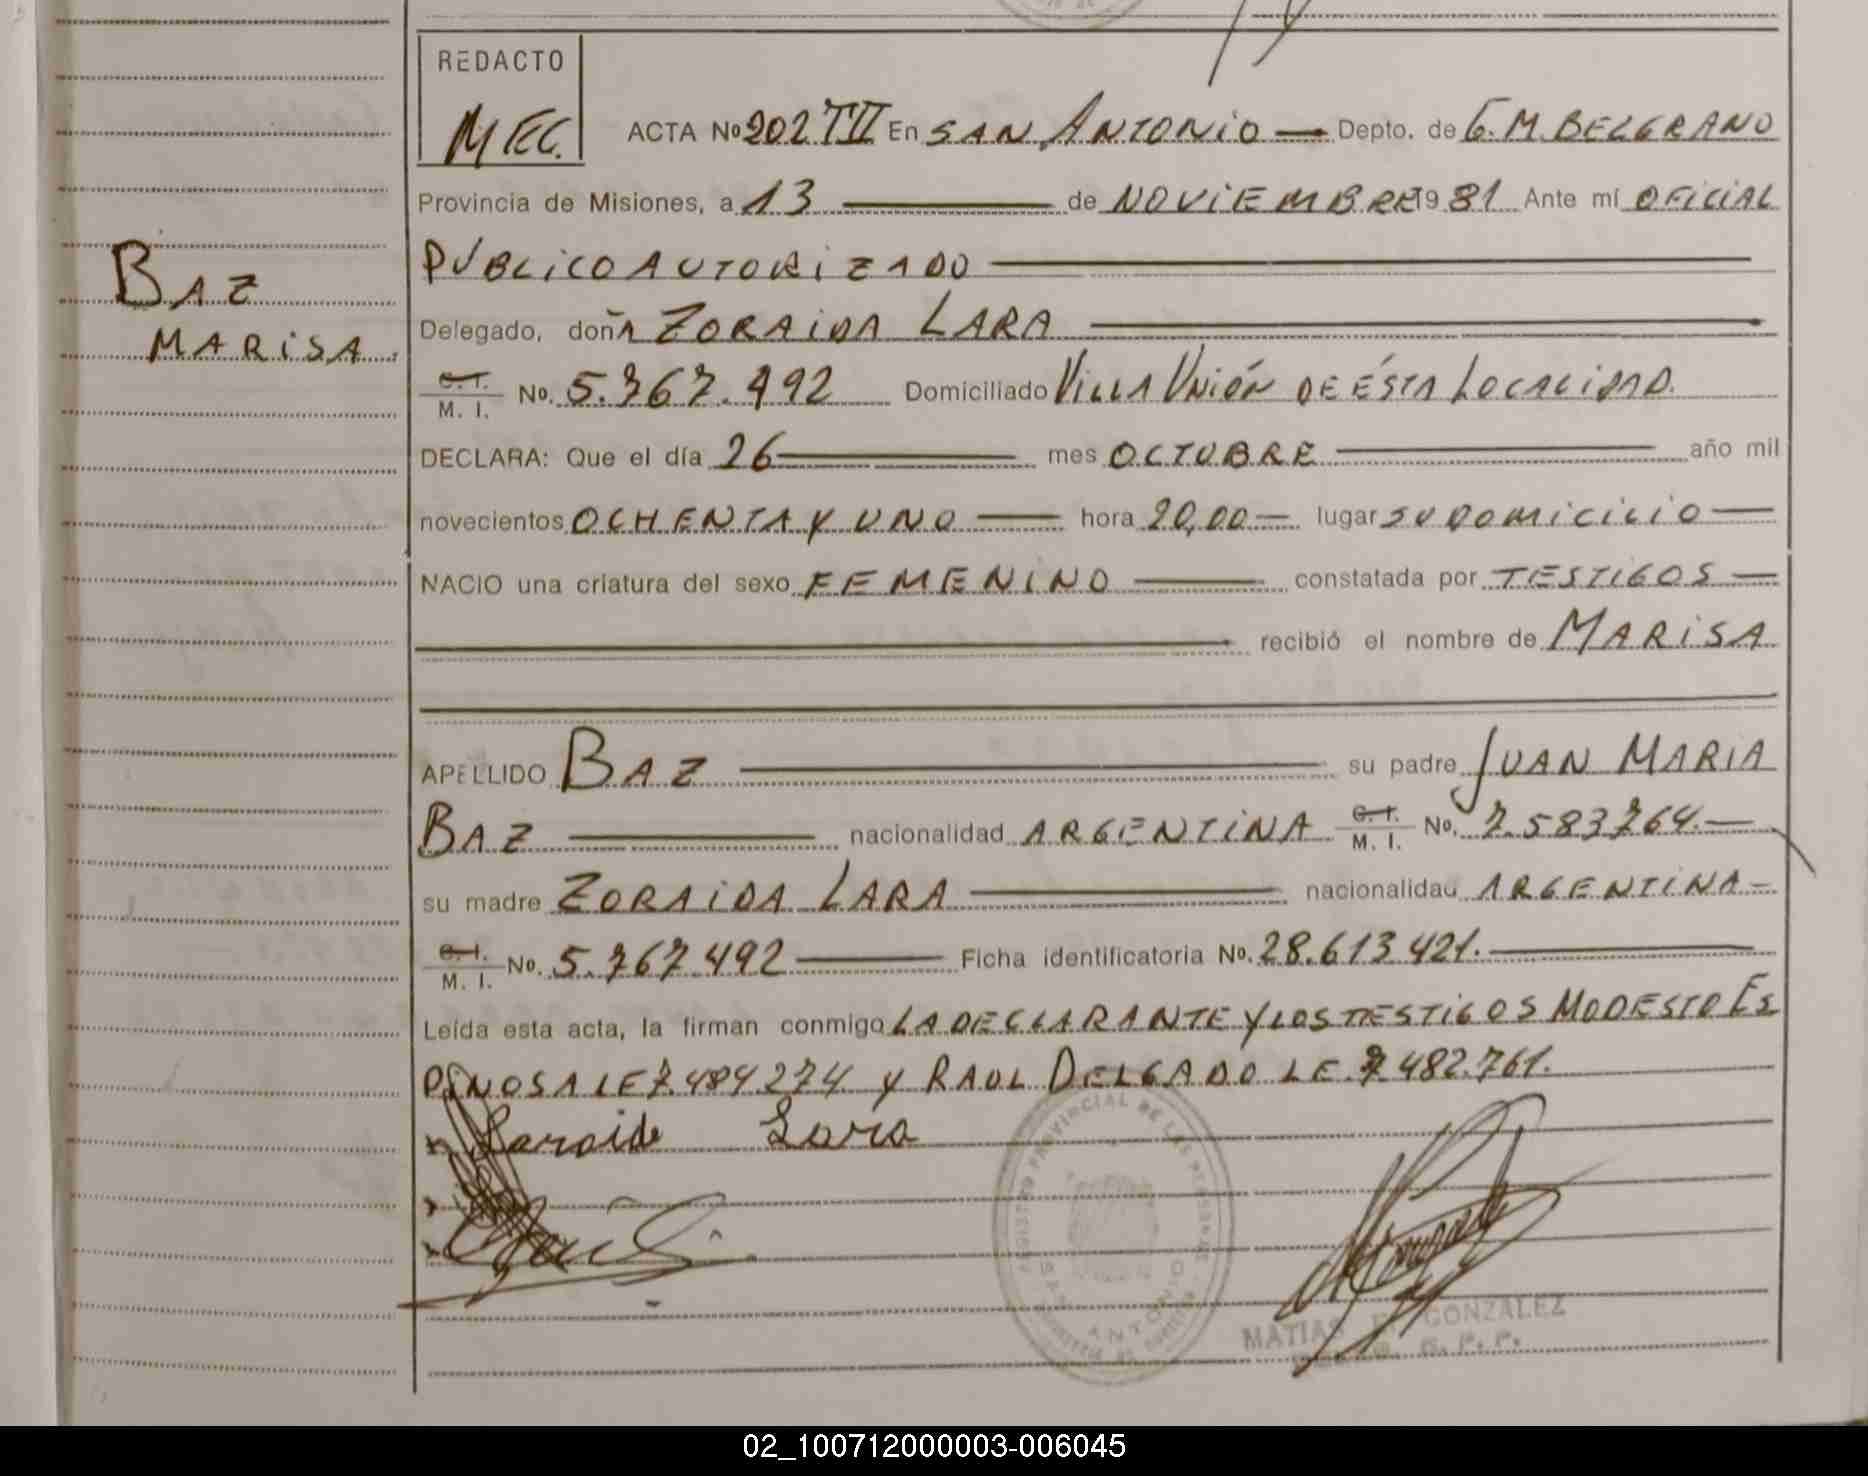 REDACTO
MEC.
ACTA No 202 TII En SAN ANTONIO Depto. de G.M. BELGRANO
Provincia de Misiones, a 13 de NOVIEMBRE 1981 Ante mí OFICIAL
PUBLICO AUTORIZADO
BAZ
MARISA.
Delegado, doña ZORAIDA LARA
C. I. / M. I. No. 5.767.492 Domiciliado VILLA UNIÓN DE ÉSTA LOCALIDAD.
DECLARA: Que el día 26 mes OCTUBRE año mil
novecientos OCHENTA Y UNO hora 20,00 lugar SU DOMICILIO
NACIO una criatura del sexo FEMENINO constatada por TESTIGOS
recibió el nombre de MARISA
APELLIDO BAZ su padre JUAN MARIA
BAZ nacionalidad ARGENTINA C. I. / M. I. No. 7.583.764.
su madre ZORAIDA LARA nacionalidad ARGENTINA
C. I. / M. I. No. 5.767.492 Ficha identificatoria No. 28.613.421.
Leída esta acta, la firman conmigo LA DECLARANTE Y LOS TESTIGOS MODESTO ES
PINOSA LE 7.484.274 Y RAUL DELGADO LE 7.482.761.
Lara
REGISTRO PROVINCIAL DE LAS PERSONAS
SAN ANTONIO
MATIAS GONZALEZ
02_100712000003-006045